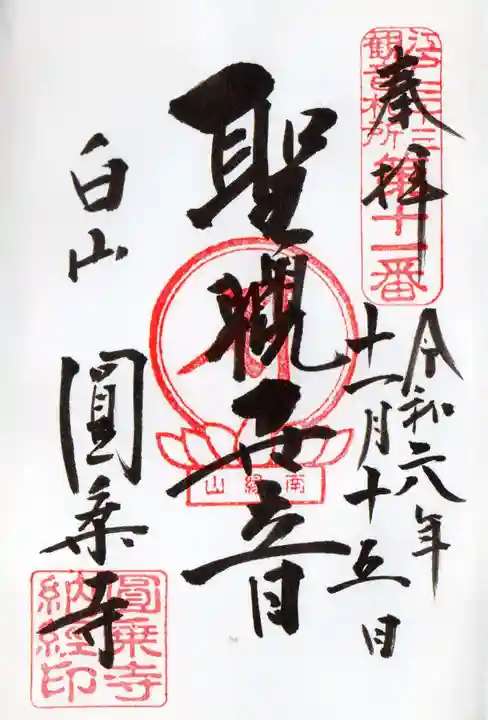 江戸三十三
観音札所
第十一番
奉拝
令和六年
十一月十五日
聖観世音
南縁山
白山
圓乗寺
圓乗寺
納経印